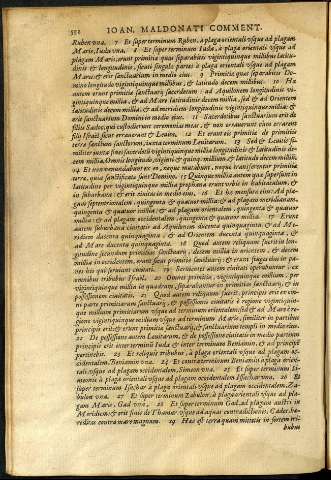 552 IOAN. MALDONATI COMMENT.
Ruben vna. 7 Et super terminum Ruben, à plaga orientali vsque ad plagam
Maris, Iuda vna. 8 Et super terminum Iuda, à plaga orientali vsque ad
plagam Maris, erunt primitiæ quas separabitis viginti quinque millibus latitu-
dinis & longitudinis, sicuti singulæ partes à plaga orientali vsque ad plagam
Maris: & erit sanctuarium in medio eius. 9 Primitiæ quas separabitis Do-
mino longitudo viginti quinque millibus, & latitudo decem millibus. 10 Hæ
autem erunt primitiæ sanctuarij sacerdotum: ad Aquilonem longitudinis vi-
ginti quinque millia, & ad Mare latitudinis decem millia, sed & ad Orientem
latitudinis decem millia, & ad meridiem longitudinis viginti quinque millia: &
erit sanctuarium Domini in medio eius. 11 Sacerdotibus sanctuarium erit de
filiis Sadoc, qui custodierunt ceremonias meas, & non errauerunt cùm errarent
filij Israël sicut errauerunt & Leuitæ. 12 Et erunt eis primitiæ de primitiis
terræ sanctum sanctorum, iuxta terminum Leuitarum. 13 Sed & Leuitis si-
militer iuxta fines sacerdotum viginti quinque millia longitudinis, & latitudinis de-
cem millia. Omnis longitudo viginti & quinque millium, & latitudo decem millium.
14 Et non venundabunt ex eo, neque mutabunt, neque transferentur primitiæ
terræ, quia sanctificatæ sunt Domino. 15 Quinque millia autem quæ supersunt in
latitudine per viginti quinque millia prophana erunt vrbis in habitaculum, &
in suburbana: & erit ciuitas in medio eius. 16 Et hæ mensuræ eius. Ad pla-
gam septentrionalem, quingenta & quatuor millia: & ad plagam meridianam,
quingenta & quatuor millia, & ad plagam orientalem, quingenta & quatuor
millia: & ad plagam occidentalem, quingenta & quatuor millia. 17 Erunt
autem suburbana ciuitatis ad Aquilonem ducenta quinquaginta, & ad Me-
ridiem ducenta quinquaginta, & ad Orientem ducenta quinquaginta, &
ad Mare ducenta quinquaginta. 18 Quod autem reliquum fuerit in lon-
gitudine secundum primitias sanctuarij, decem millia in orientem, & decem
millia in occidentem, erunt sicut primitiæ sanctuarij: & erunt fruges eius in pa-
nes his qui seruiunt ciuitati. 19 Seruientes autem ciuitati operabuntur, ex
omnibus tribubus Israël. 20 Omnes primitiæ, viginti quinque millium, per
viginti quinque millia in quadrum, separabuntur in primitias sanctuarij, & in
possessionem ciuitatis. 21 Quod autem reliquum fuerit, principis erit ex om-
ni parte primitiarum sanctuarij, & possessionis ciuitatis è regione viginti quin-
que millium primitiarum vsque ad terminum orientalem: sed & ad Mare è re-
gione viginti quinque millium vsque ad terminum Maris, similiter in partibus
principis erit: & erunt primitiæ sanctuarij, & sanctuarium templi in medio eius.
22 De possessione autem Leuitarum, & de possessione ciuitatis in medio partium
principis erit inter terminum Iuda & inter terminum Beniamin, & ad principem
pertinebit. 23 Et reliquis tribubus, à plaga orientali vsque ad plagam oc-
cidentalem, Beniamin vna. 24 Et contra terminum Beniamin à plaga orien-
tali vsque ad plagam occidentalem, Simeon vna. 25 Et super terminum Si-
meonis à plaga orientali vsque ad plagam occidentalem Issachar vna. 26 Et
super terminum Issachar à plaga orientali vsque ad plagam occidentalem, Za-
bulon vna. 27 Et super terminum Zabulon, à plaga orientali vsque ad pla-
gam Maris, Gad vna. 28 Et super terminum Gad, ad plagam austri in
Meridiem: & erit finis de Thamar vsque ad aquas contradictionis, Cades hæ-
reditas contra mare magnum. 29 Hæc est terra quam mittetis in sortem tri-
bubus